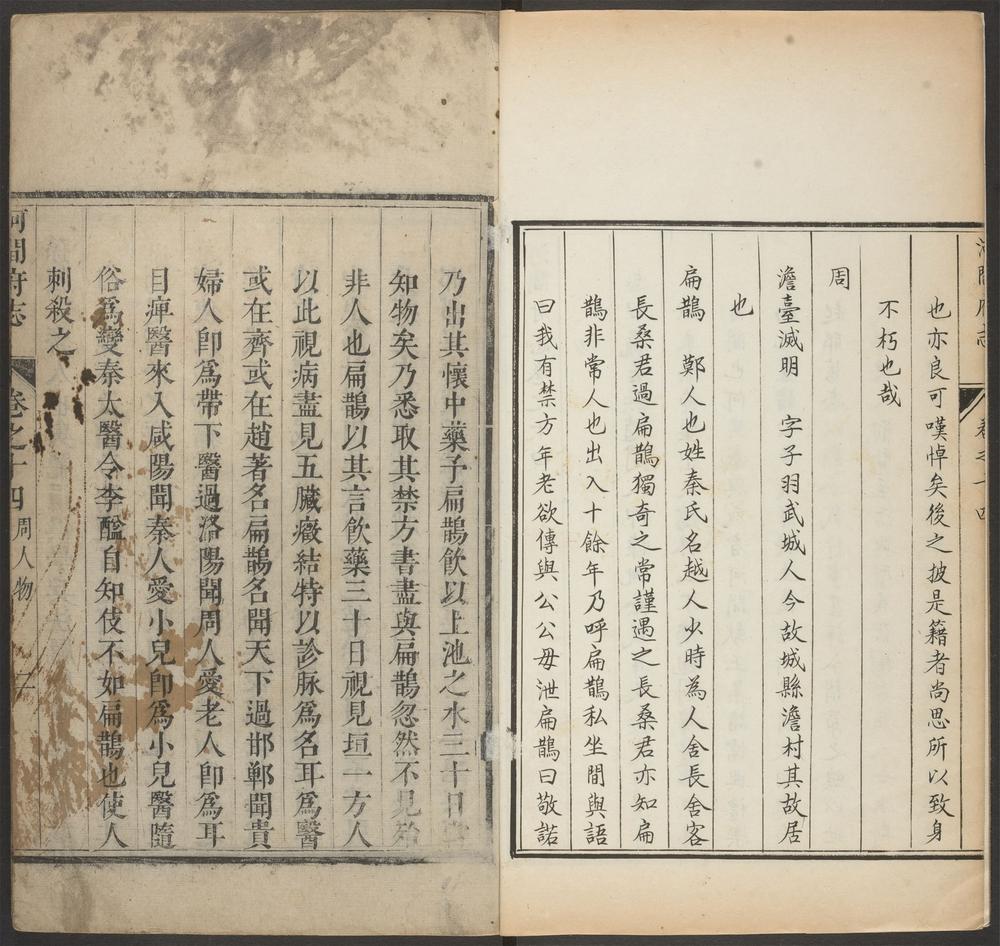 也亦良可嘆悼矣後之披是籍者尚思所以致身
不朽也哉
周
澹臺滅明 字子羽武城人今故城縣澹村其故居
也
扁鵲 鄭人也姓秦氏名越人少時為人舍長舍客
長桑君過扁鵲獨奇之常謹遇之長桑君亦知扁
鵲非常人也出入十餘年乃呼扁鵲私坐間與語
曰我有禁方年老欲傳與公公毋泄扁鵲曰敬諾
乃出其懷中藥予扁鵲飲以上池之水三十日
知物矣乃悉取其禁方書盡與扁鵲忽然不見殆
非人也扁鵲以其言飲藥三十日視見垣一方人
以此視病盡見五臟癥結特以診脉為名耳爲醫
或在齊或在趙著名扁鵲名聞天下過邯鄲聞貴
婦人卽爲帶下醫過洛陽聞周人愛老人卽爲耳
目痺醫來入咸陽聞秦人愛小兒卽爲小兒醫隨
俗爲變秦太醫令李醯自知伎不如扁鵲也使人
刺殺之
河間府志 卷之十四 周人物 二